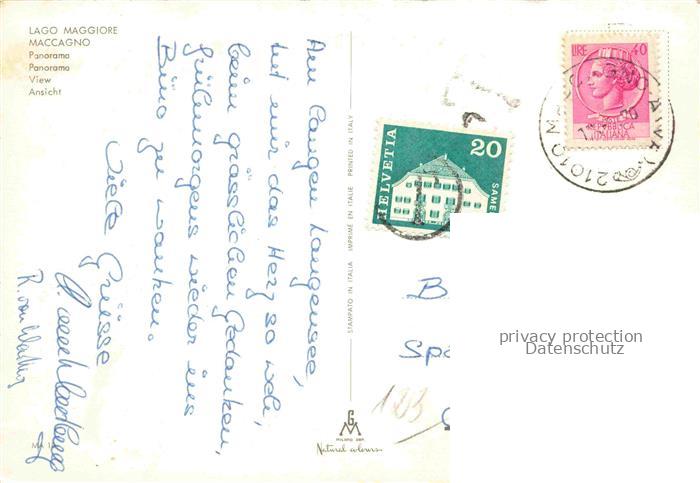 LAGO MAGGIORE
MACCAGNO
Panorama
Panorama
View
Ansicht
Am langen Langensee,
tut mir das Herz so weh,
beim grässlichen Gedanken,
frühmorgens wieder ins
Büro zu wanken.
Viele Grüsse
R. von
MA
STAMPATO IN ITALIA IMPRIME EN ITALIE PRINTED IN ITALY
GM
MILANO
Natural colours
HELVETIA
20
SAME
LIRE 40
REPUBBLICA
ITALIANA
21010 MACCAGNO (VA)
B
Spa
123
privacy protection
Datenschutz